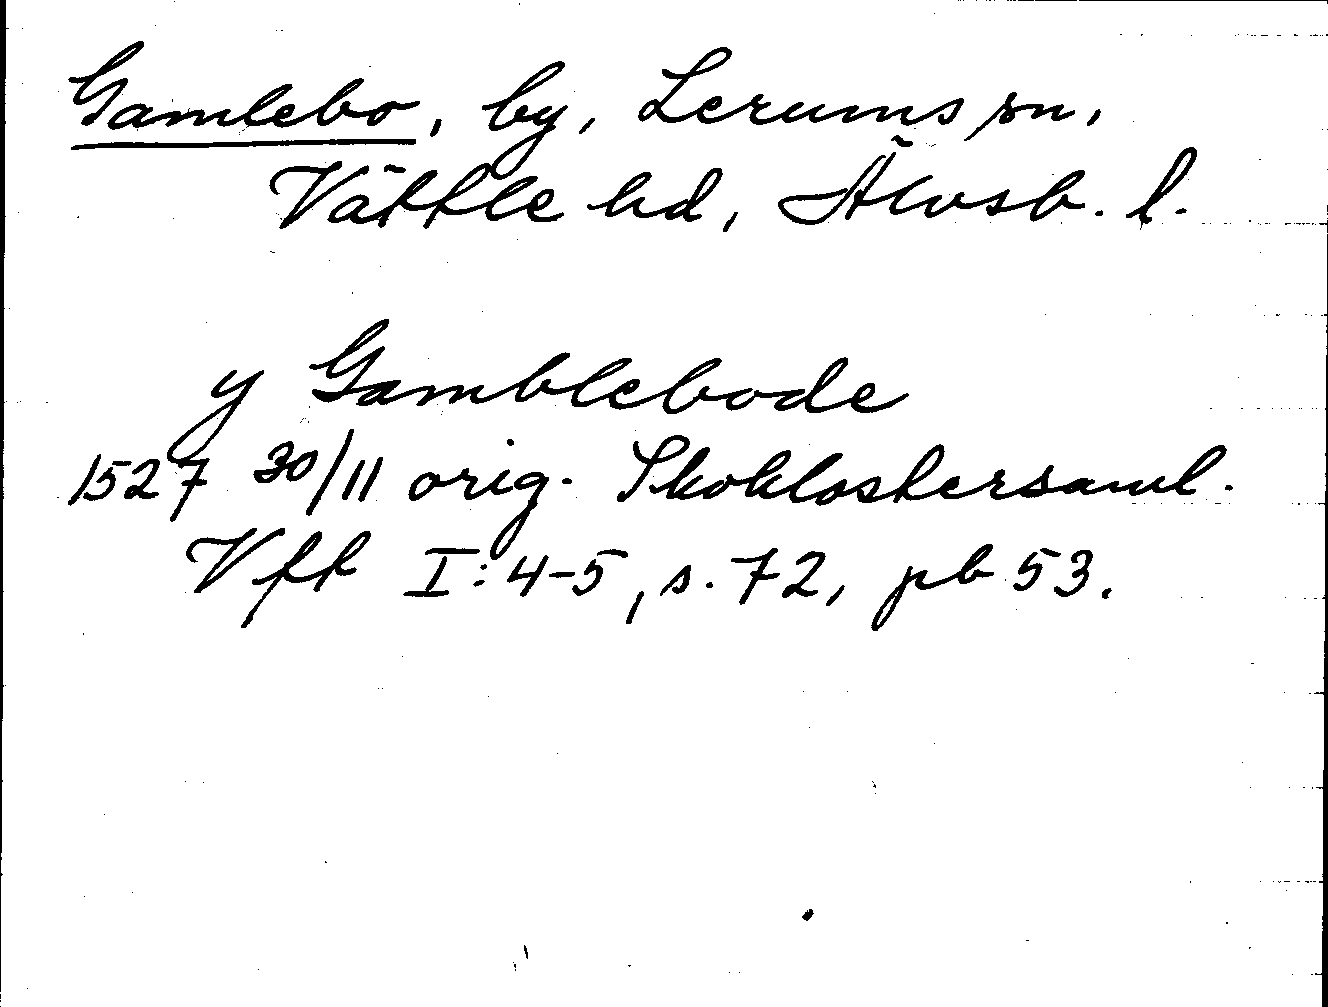 Gamlebo, by, Lerums sn,
Vättle hd, Älvsb. l.
y Gamblebode
1527 30/11 orig. Skoklostersaml.
Vft I:4-5, s. 72, pb 53.